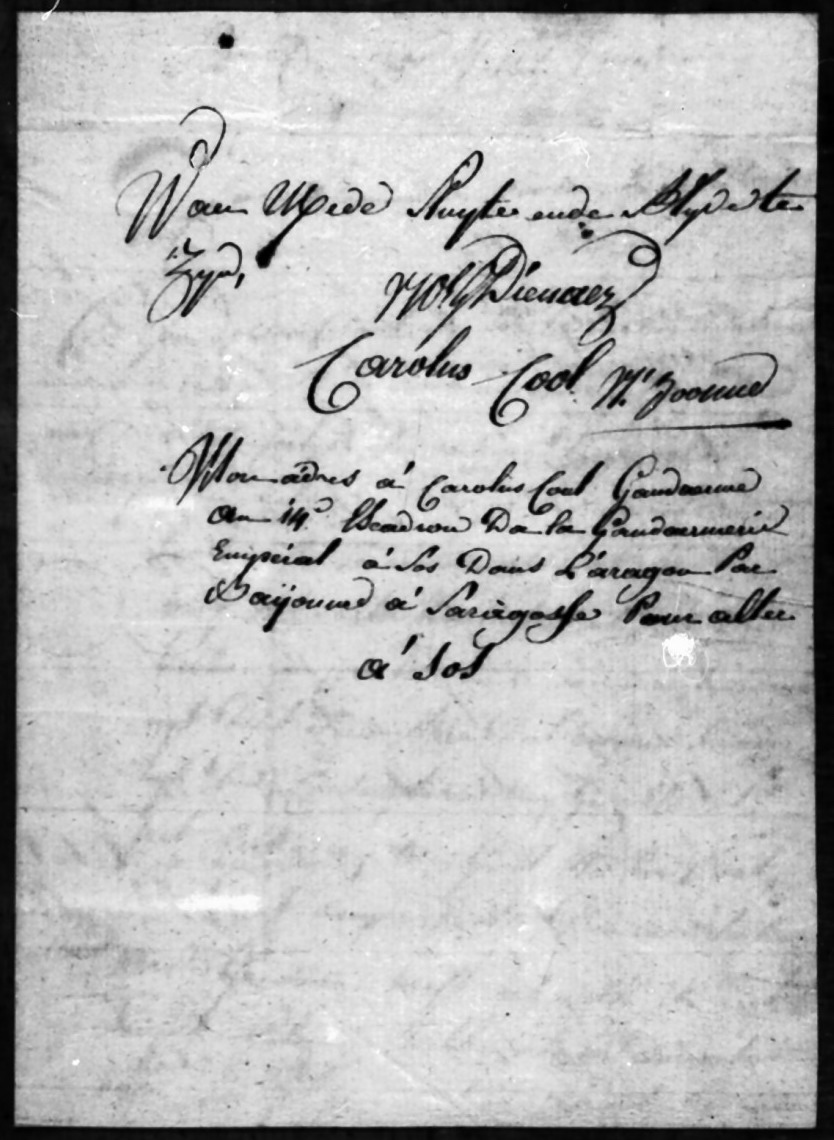 Waer Mede Sluyte ende Blyve te
Zyn,
Dienaer
Carolus Cool Uw Zoone
Mon adres á Carolus Cool Gandaerme
au 14e Escadron Da la Gandaermerie
Empirial á Sos Dans L'áragon Par
Baÿonne á Saragosse Pour aller
á Sos